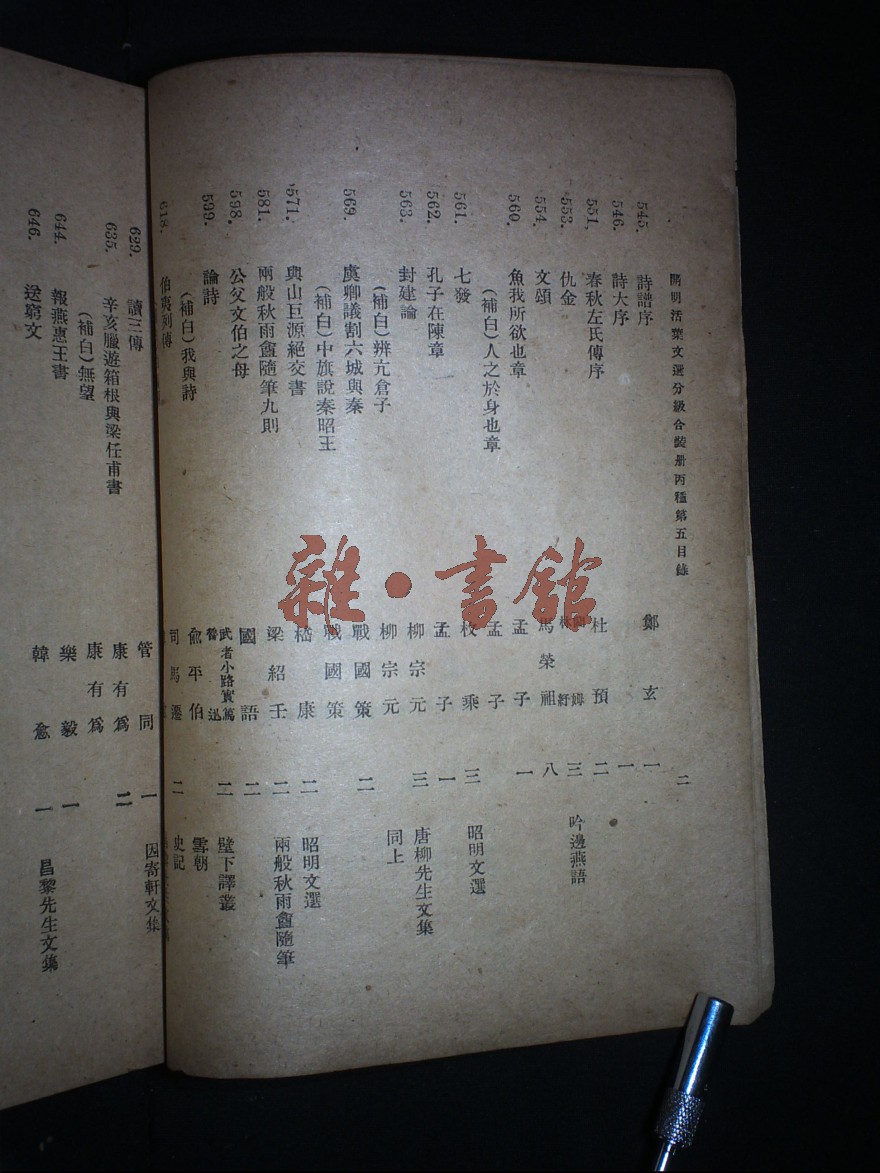 開明活葉文選分級合裝册丙種第五目錄 二
545. 詩譜序 鄭玄 一
546. 詩大序 一
551. 春秋左氏傳序 杜預 二
553. 仇金 林紓 三 吟邊燕語
554. 文頌 馬榮祖 八
560. 魚我所欲也章 孟子 一
(補白)人之於身也章 孟子
561. 七發 枚乘 三 昭明文選
562. 孔子在陳章 孟子 一
563. 封建論 柳宗元 三 唐柳先生文集
(補白)辨亢倉子 柳宗元 同上
569. 虞卿議割六城與秦 戰國策 二
(補白)中旗說秦昭王 戰國策
571. 與山巨源絕交書 嵇康 二 昭明文選
581. 兩般秋雨盦隨筆九則 梁紹壬 二 兩般秋雨盦隨筆
598. 公父文伯之母 國語 二
599. 論詩 武者小路實篤 魯迅 二 壁下譯叢
(補白)我與詩 俞平伯 雪朝
618. 伯夷列傳 司馬遷 二 史記
629. 讀三傳 管同 一 因寄軒文集
635. 辛亥臘遊箱根與梁任甫書 康有爲 二
(補白)無望 康有爲
644. 報燕惠王書 樂毅 一
646. 送窮文 韓愈 一 昌黎先生文集
雜·書館